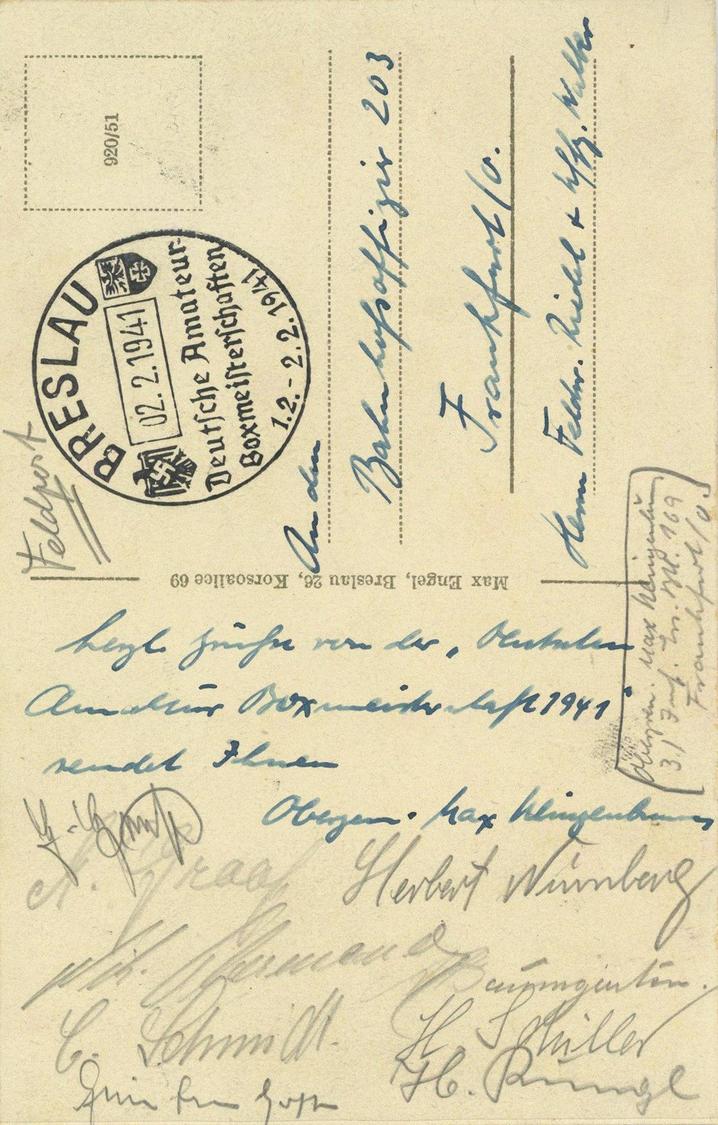 Feldpost
920/51
BRESLAU
02.2.1941
Deutsche Amateur-
Boxmeisterschaften
1.2. - 2.2.1941
An den
Bahnhofsoffizier 203
Frankfurt/O.
Herrn Feldw. Riedel + Uffz. Walter
Max Engel, Breslau 26, Korsoallee 69
Obergren. Max Klingenbunn
3./ Inf. Nr. 169
Frankfurt/O.
herzl Grüße von der „Deutschen
Amateur Boxmeisterschaft 1941"
sendet Ihnen
Obergren. Max Klingenbunn
A. Graaf
Herbert Nürnberg
Baumgarten.
C. Schmidt.
H. Schiller
H. Runge